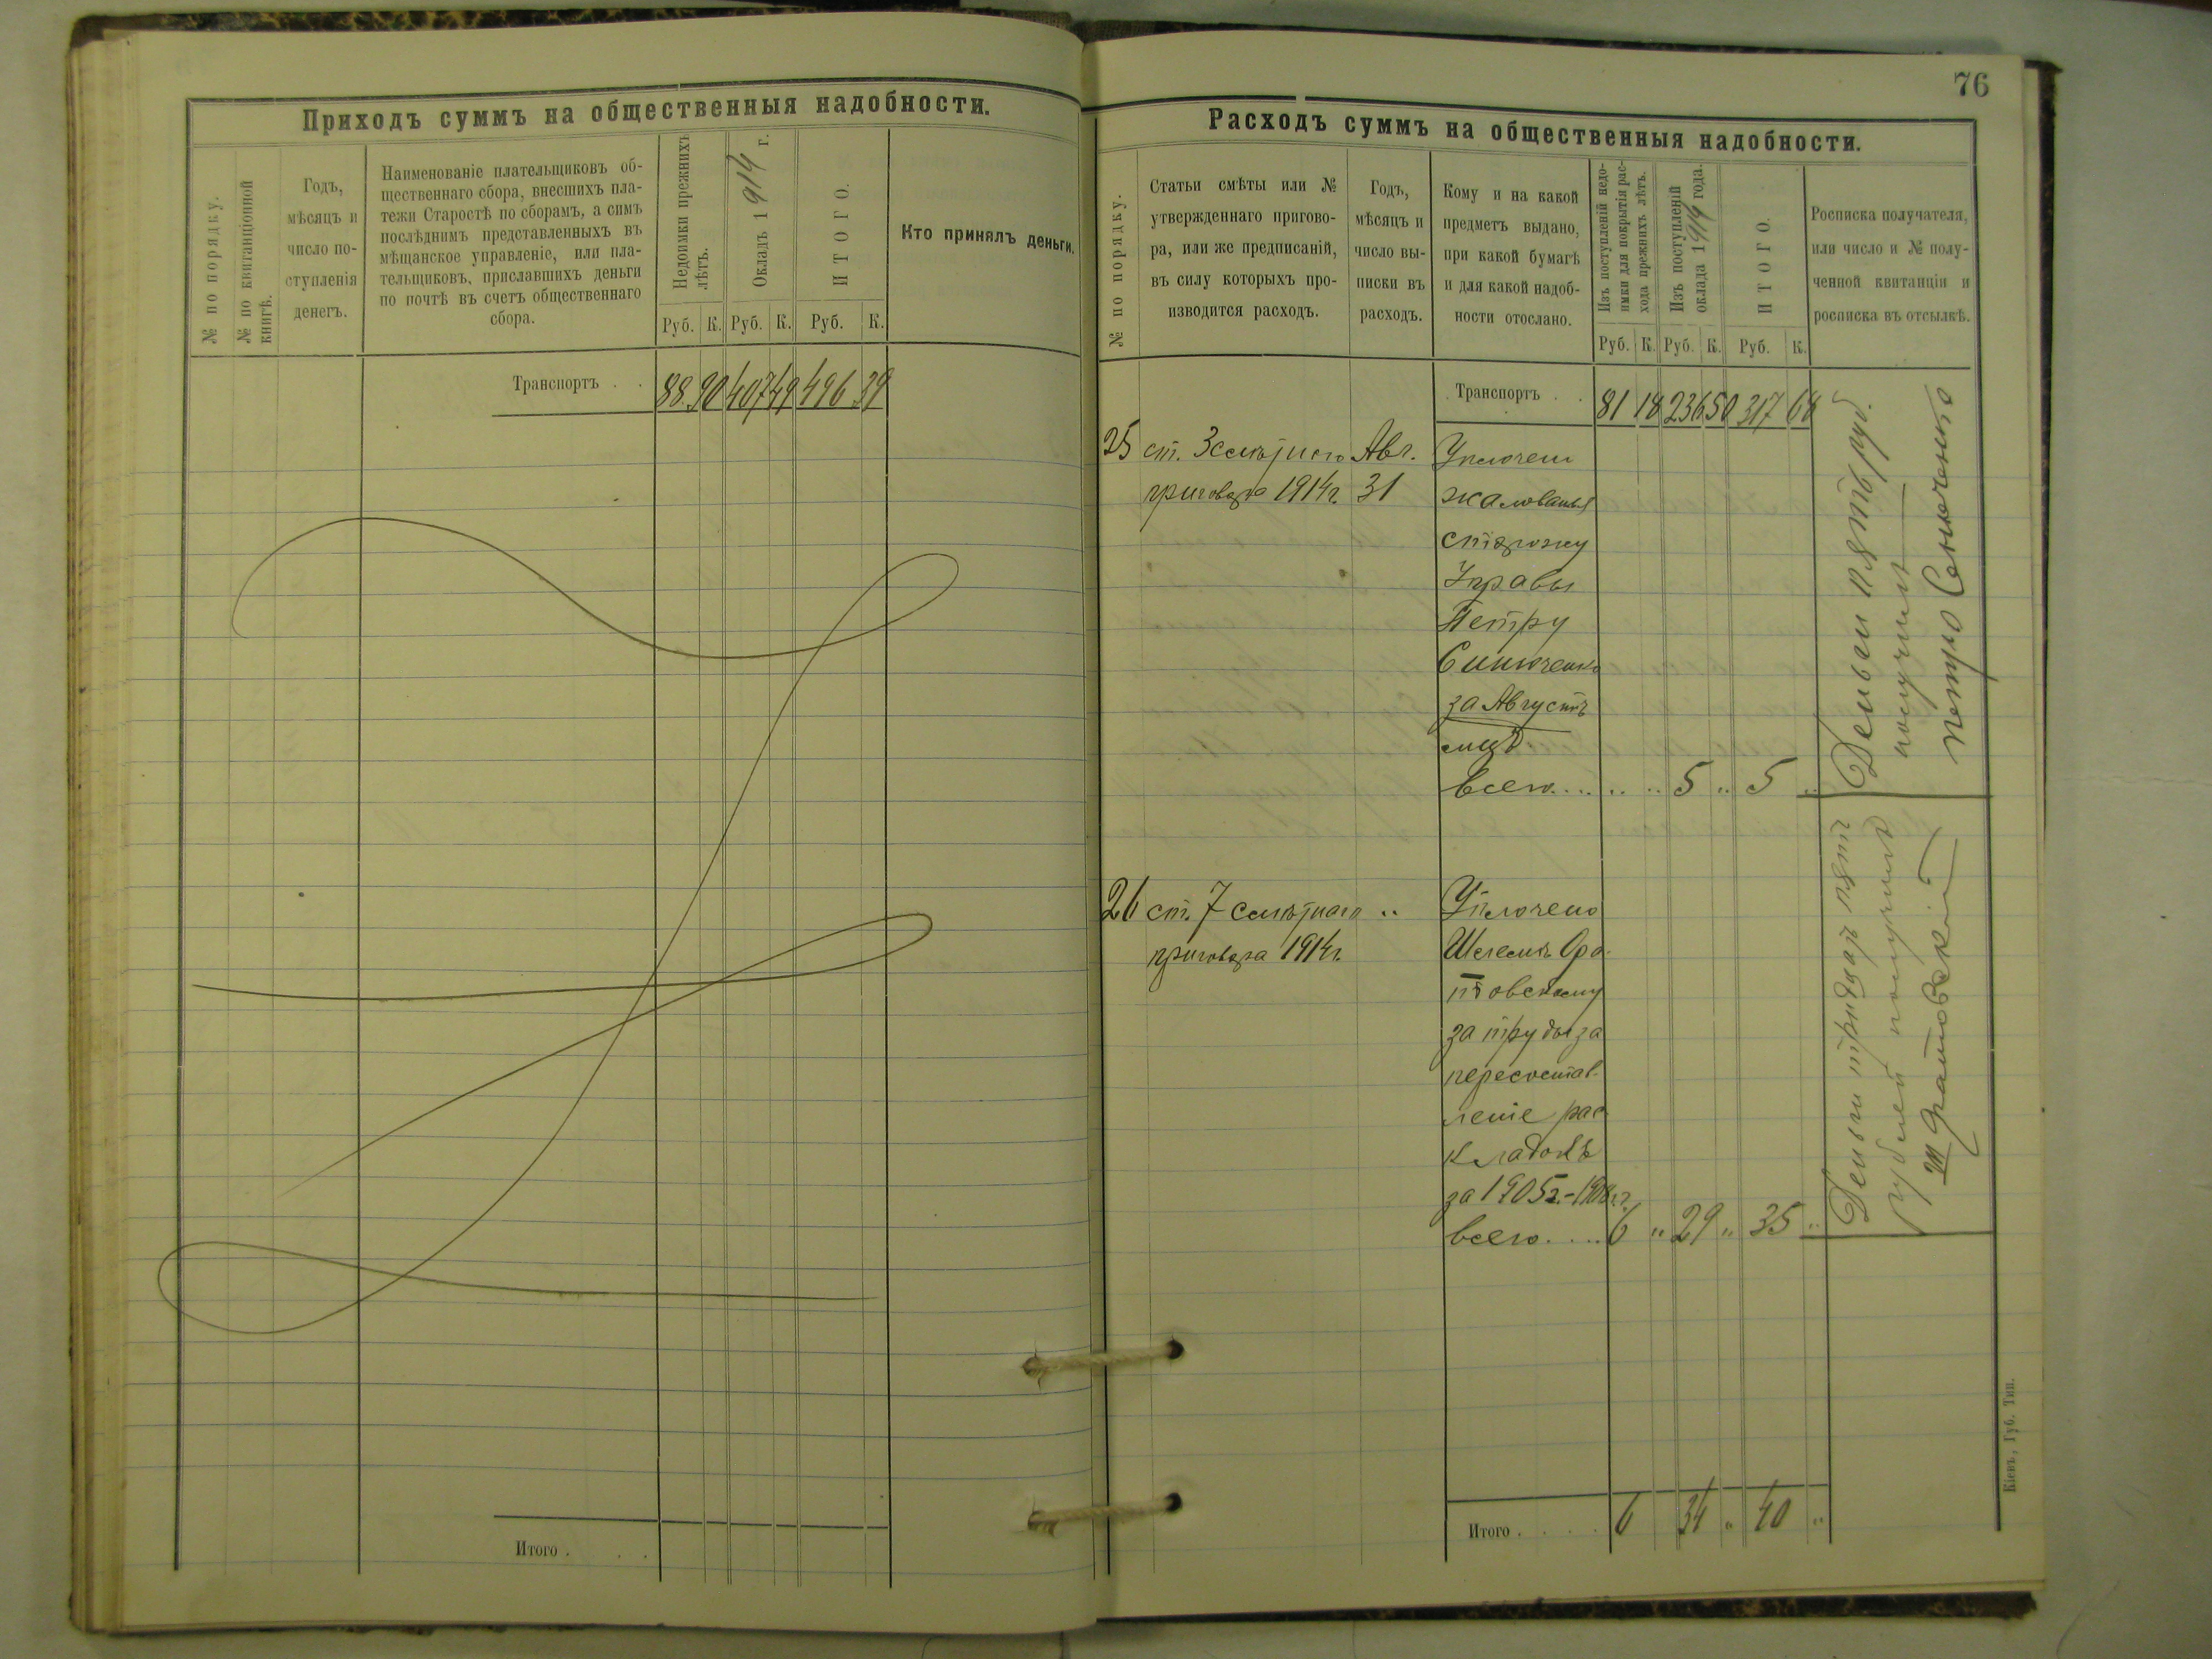 Приходъ суммъ на общественныя надобности.
№ по порядку.
№ по квитанціонной
книгѣ.
Годъ,
мѣсяцъ и
число по-
ступленія
денегъ.
Наименованіе плательщиковъ об-
щественнаго сбора, внесшихъ пла-
тежи Старостѣ по сборамъ, а симъ
послѣднимъ представленныхъ въ
мѣщанское управленіе, или пла-
тельщиковъ, приславшихъ деньги
по почтѣ въ счетъ общественнаго
сбора.
Недоимки прежнихъ
лѣтъ.
Окладъ 1914 г.
ИТОГО.
Кто принялъ деньги.
Руб. К. Руб. К. Руб. К.
Транспортъ . . 88 90 407 49 496 39
Итого . . .
76
Расходъ суммъ на общественныя надобности.
№ по порядку.
Статьи смѣты или №
утвержденнаго пригово-
ра, или же предписаній,
въ силу которыхъ про-
изводится расходъ.
Годъ,
мѣсяцъ и
число вы-
писки въ
расходъ.
Кому и на какой
предметъ выдано,
при какой бумагѣ
и для какой надоб-
ности отослано.
Изъ поступленій недо-
имки для покрытія рас-
хода прежнихъ лѣтъ.
Изъ поступленій
оклада 1914 года.
ИТОГО.
Росписка получателя,
или число и № полу-
ченной квитанціи и
росписка въ отсылкѣ.
Руб. К. Руб. К. Руб. К.
Транспортъ . . 81 18 236 50 317 68
25 ст. 3 смѣтнаго Авг.
приговора 1914г. 31
Уплочено
жалованья
сторожу
Управы
Петру
Синюченко
за Августъ
мцъ
всего.... .. .. 5 .. 5 ..
Деньги пять руб.
получилъ
Петро Сенюченко
26 ст. 7 смѣтнаго ..
приговора 1914г.
Уплочено
Ора-
товскому
за труды за
пересостав-
леніе рас
кладокъ
за 1905г.-1908гг.
всего.... 6 " 29 " 35 "
Деньги тридцать пять
рублей получилъ
Оратовскій
Итого . . . . 6 34 " 40 "
Кіевъ, Губ. Тип.